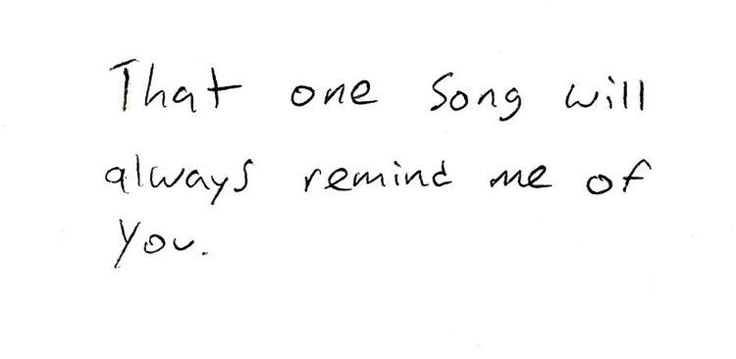 That one song will
always remind me of
you.